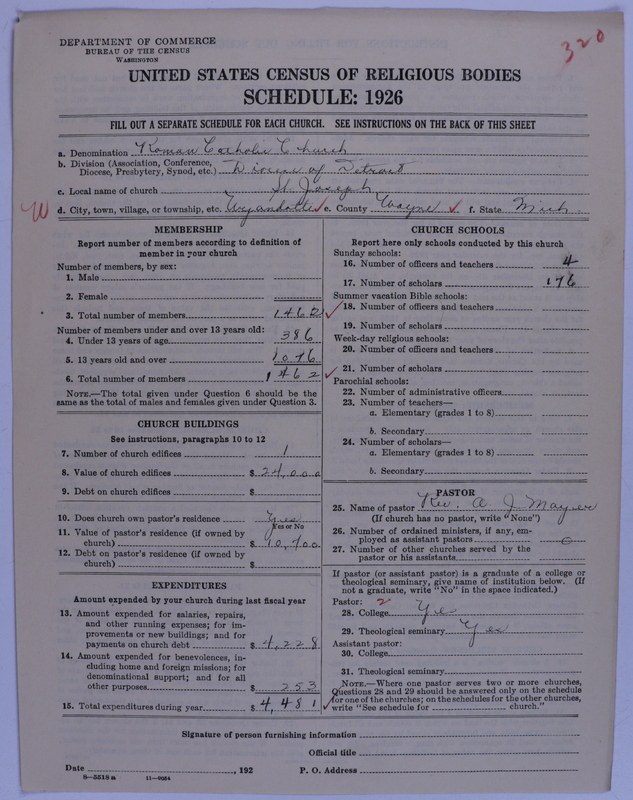 320
DEPARTMENT OF COMMERCE
BUREAU OF THE CENSUS
WASHINGTON
UNITED STATES CENSUS OF RELIGIOUS BODIES
SCHEDULE: 1926
FILL OUT A SEPARATE SCHEDULE FOR EACH CHURCH. SEE INSTRUCTIONS ON THE BACK OF THIS SHEET
a. Denomination Roman Catholic Church
b. Division (Association, Conference, Diocese, Presbytery, Synod, etc.) Diocese of Detroit
c. Local name of church St. Joseph
W d. City, town, village, or township, etc. Wyandotte e. County Wayne f. State Mich.
MEMBERSHIP
Report number of members according to definition of
member in your church
Number of members, by sex:
1. Male
2. Female
3. Total number of members 1462
Number of members under and over 13 years old:
4. Under 13 years of age 386
5. 13 years old and over 1076
6. Total number of members 1462
NOTE.—The total given under Question 6 should be the
same as the total of males and females given under Question 3.
CHURCH BUILDINGS
See instructions, paragraphs 10 to 12
7. Number of church edifices 1
8. Value of church edifices $ 24,000
9. Debt on church edifices $
10. Does church own pastor's residence Yes
Yes or No
11. Value of pastor's residence (if owned by
church) $ 10,700
12. Debt on pastor's residence (if owned by
church) $
EXPENDITURES
Amount expended by your church during last fiscal year
13. Amount expended for salaries, repairs,
and other running expenses; for im-
provements or new buildings; and for
payments on church debt $ 4,228
14. Amount expended for benevolences, in-
cluding home and foreign missions; for
denominational support; and for all
other purposes $ 253
15. Total expenditures during year $ 4,481
CHURCH SCHOOLS
Report here only schools conducted by this church
Sunday schools:
16. Number of officers and teachers 4
17. Number of scholars 176
Summer vacation Bible schools:
18. Number of officers and teachers
19. Number of scholars
Week-day religious schools:
20. Number of officers and teachers
21. Number of scholars
Parochial schools:
22. Number of administrative officers
23. Number of teachers—
a. Elementary (grades 1 to 8)
b. Secondary
24. Number of scholars—
a. Elementary (grades 1 to 8)
b. Secondary
PASTOR
25. Name of pastor Rev. A. J. Mayer
(If church has no pastor, write "None")
26. Number of ordained ministers, if any, em-
ployed as assistant pastors 0
27. Number of other churches served by the
pastor or his assistants
If pastor (or assistant pastor) is a graduate of a college or
theological seminary, give name of institution below. (If
not a graduate, write "No" in the space indicated.)
Pastor: 2
28. College Yes
29. Theological seminary Yes
Assistant pastor:
30. College
31. Theological seminary
NOTE.—Where one pastor serves two or more churches,
Questions 28 and 29 should be answered only on the schedule
for one of the churches; on the schedules for the other churches,
write "See schedule for church."
Signature of person furnishing information
Official title
Date , 192 P. O. Address
8—5518a 11—9054